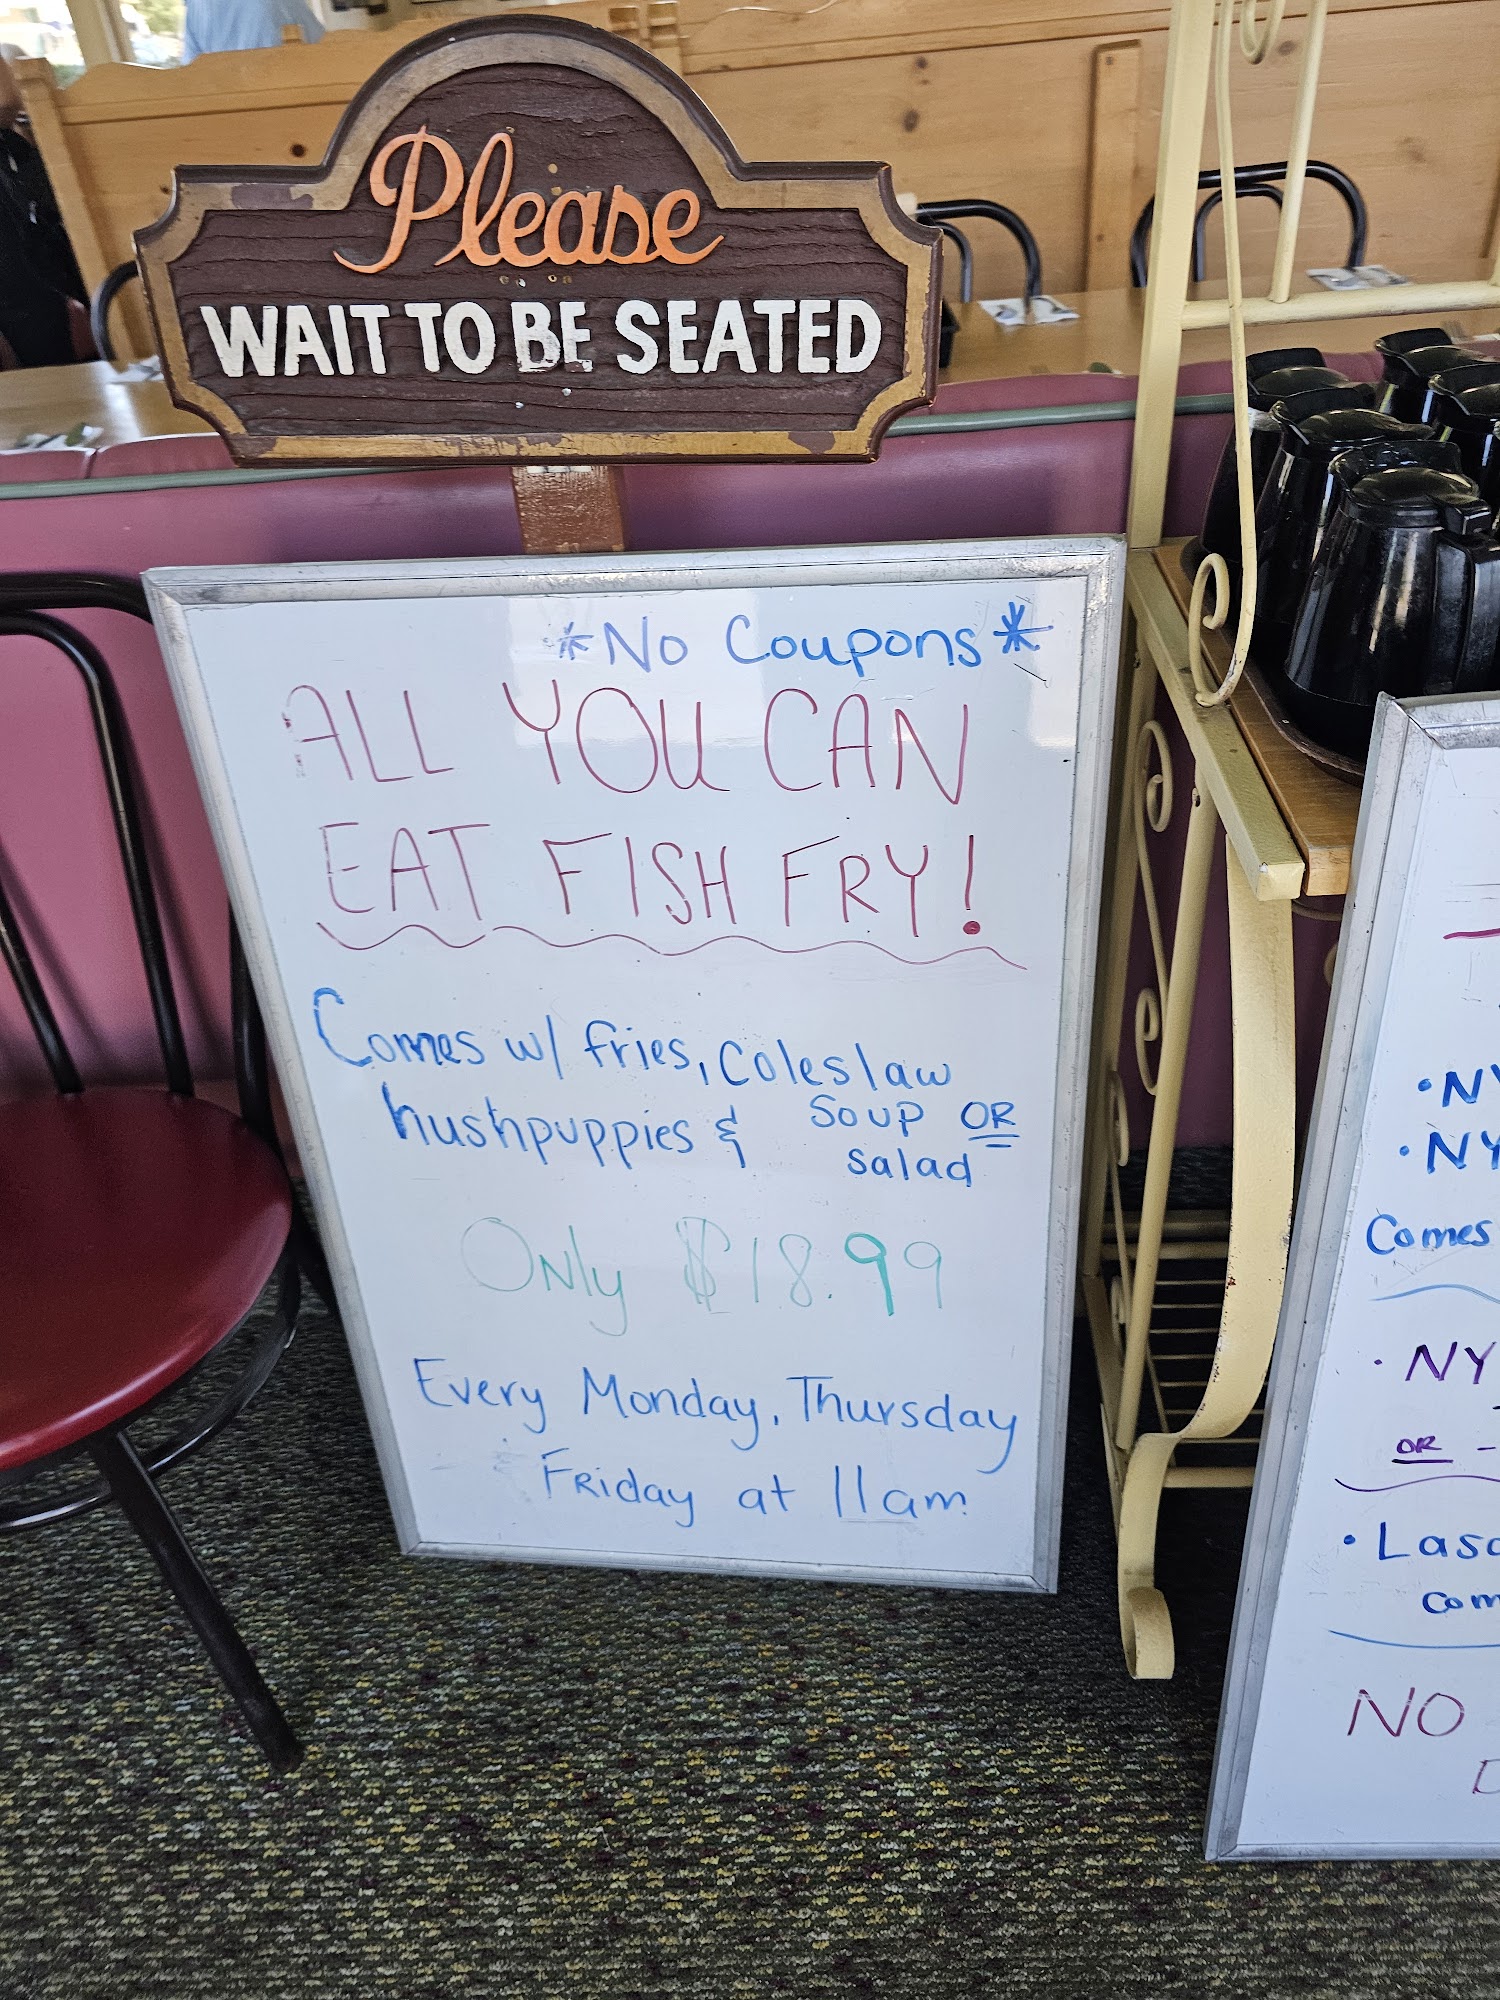 Please
WAIT TO BE SEATED
*No Coupons*
ALL YOU CAN
EAT FISH FRY!
Comes w/ fries, Coleslaw
hushpuppies & Soup OR
salad
Only $18.99
Every Monday, Thursday
Friday at 11am
• NY
• NY
Comes
• NY
OR -
• Lasa
Com
NO